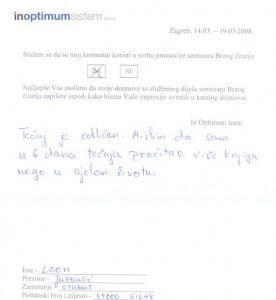 inoptimumsistem d.o.o.
Zagreb, 14.03. – 19.03.2008.
Slažem se da se moj komentar koristi u svrhu promocije seminara Brzog čitanja
DA NE
Najljepše Vas molimo da svoje dojmove sa službenog dijela seminara Brzog
čitanja zapišete ispod, kako bismo Vaše impresije uvrstili u katalog dojmova.
In Optimum team
Tečaj je odličan. Mislim da sam
u 6 dana tečaja pročitao više knjiga
nego u cijelom životu.
Ime - Leon
Prezime -
Zanimanje - student
Poštanski broj i mjesto - 44000 SISAK